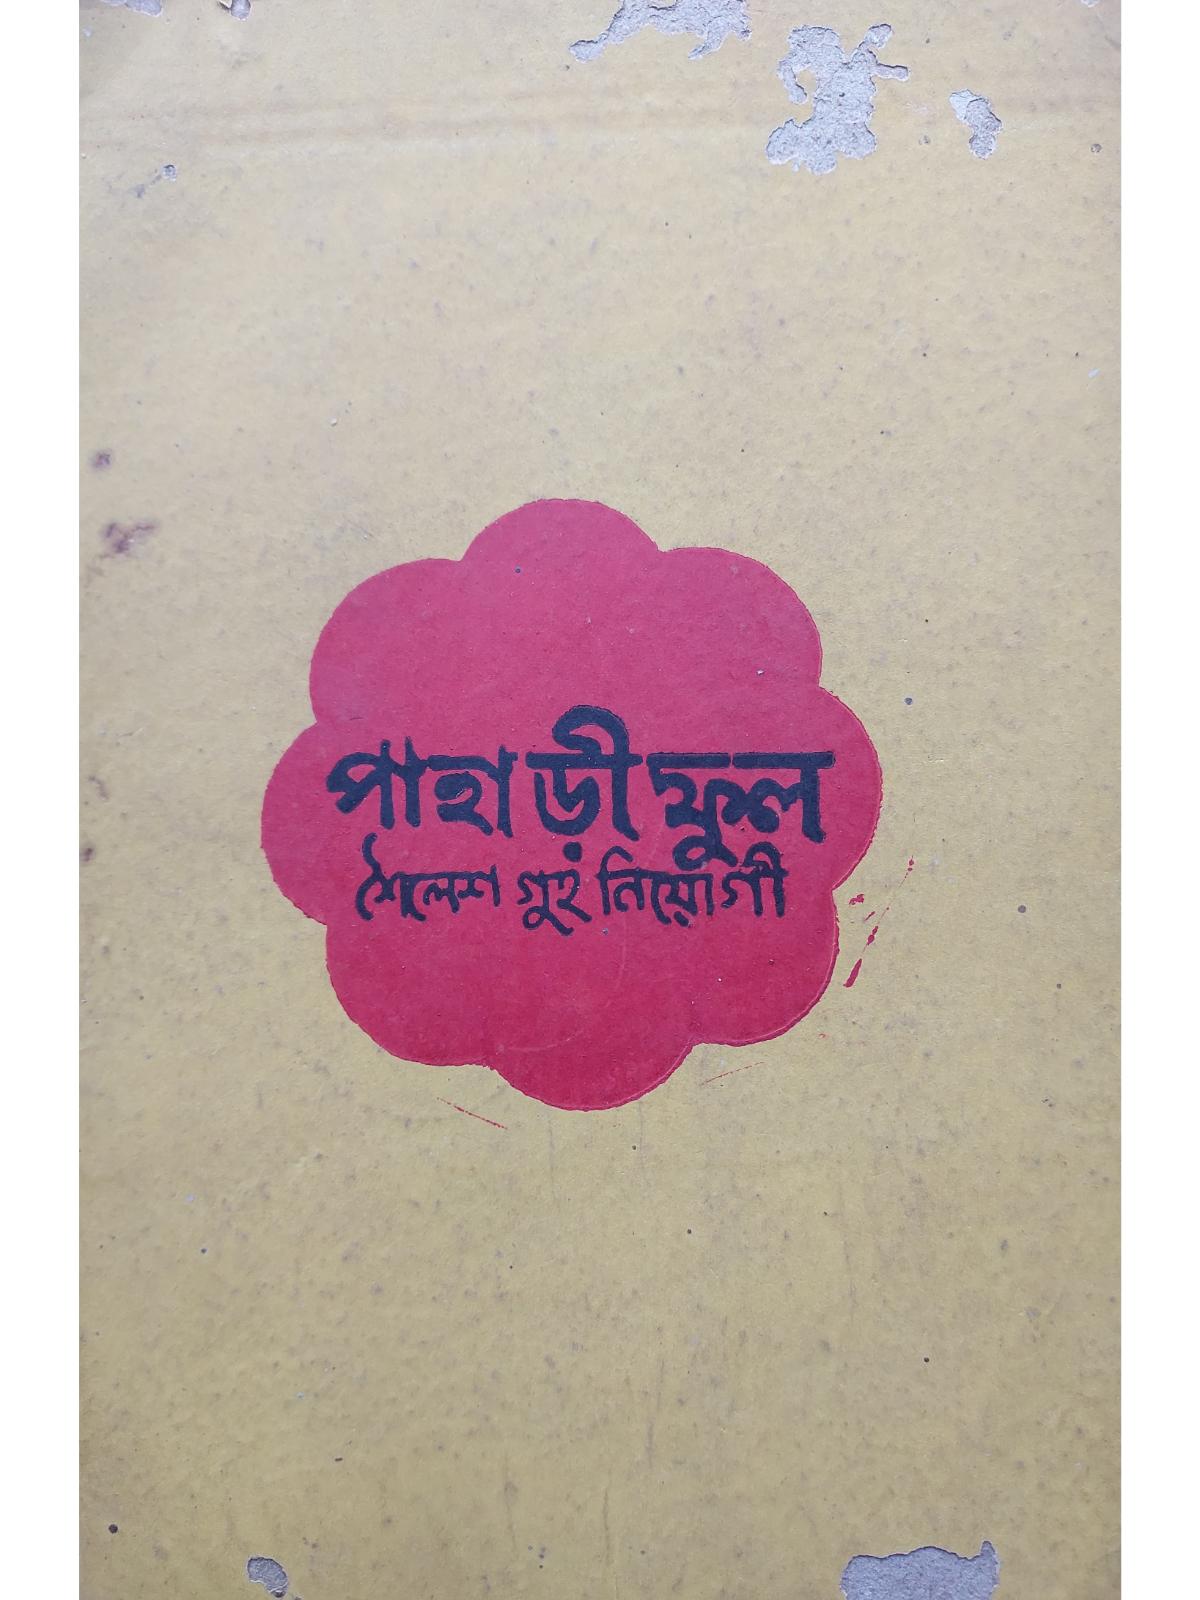 পাহাড়ী ফুল
শৈলেশ গুহ নিয়োগী